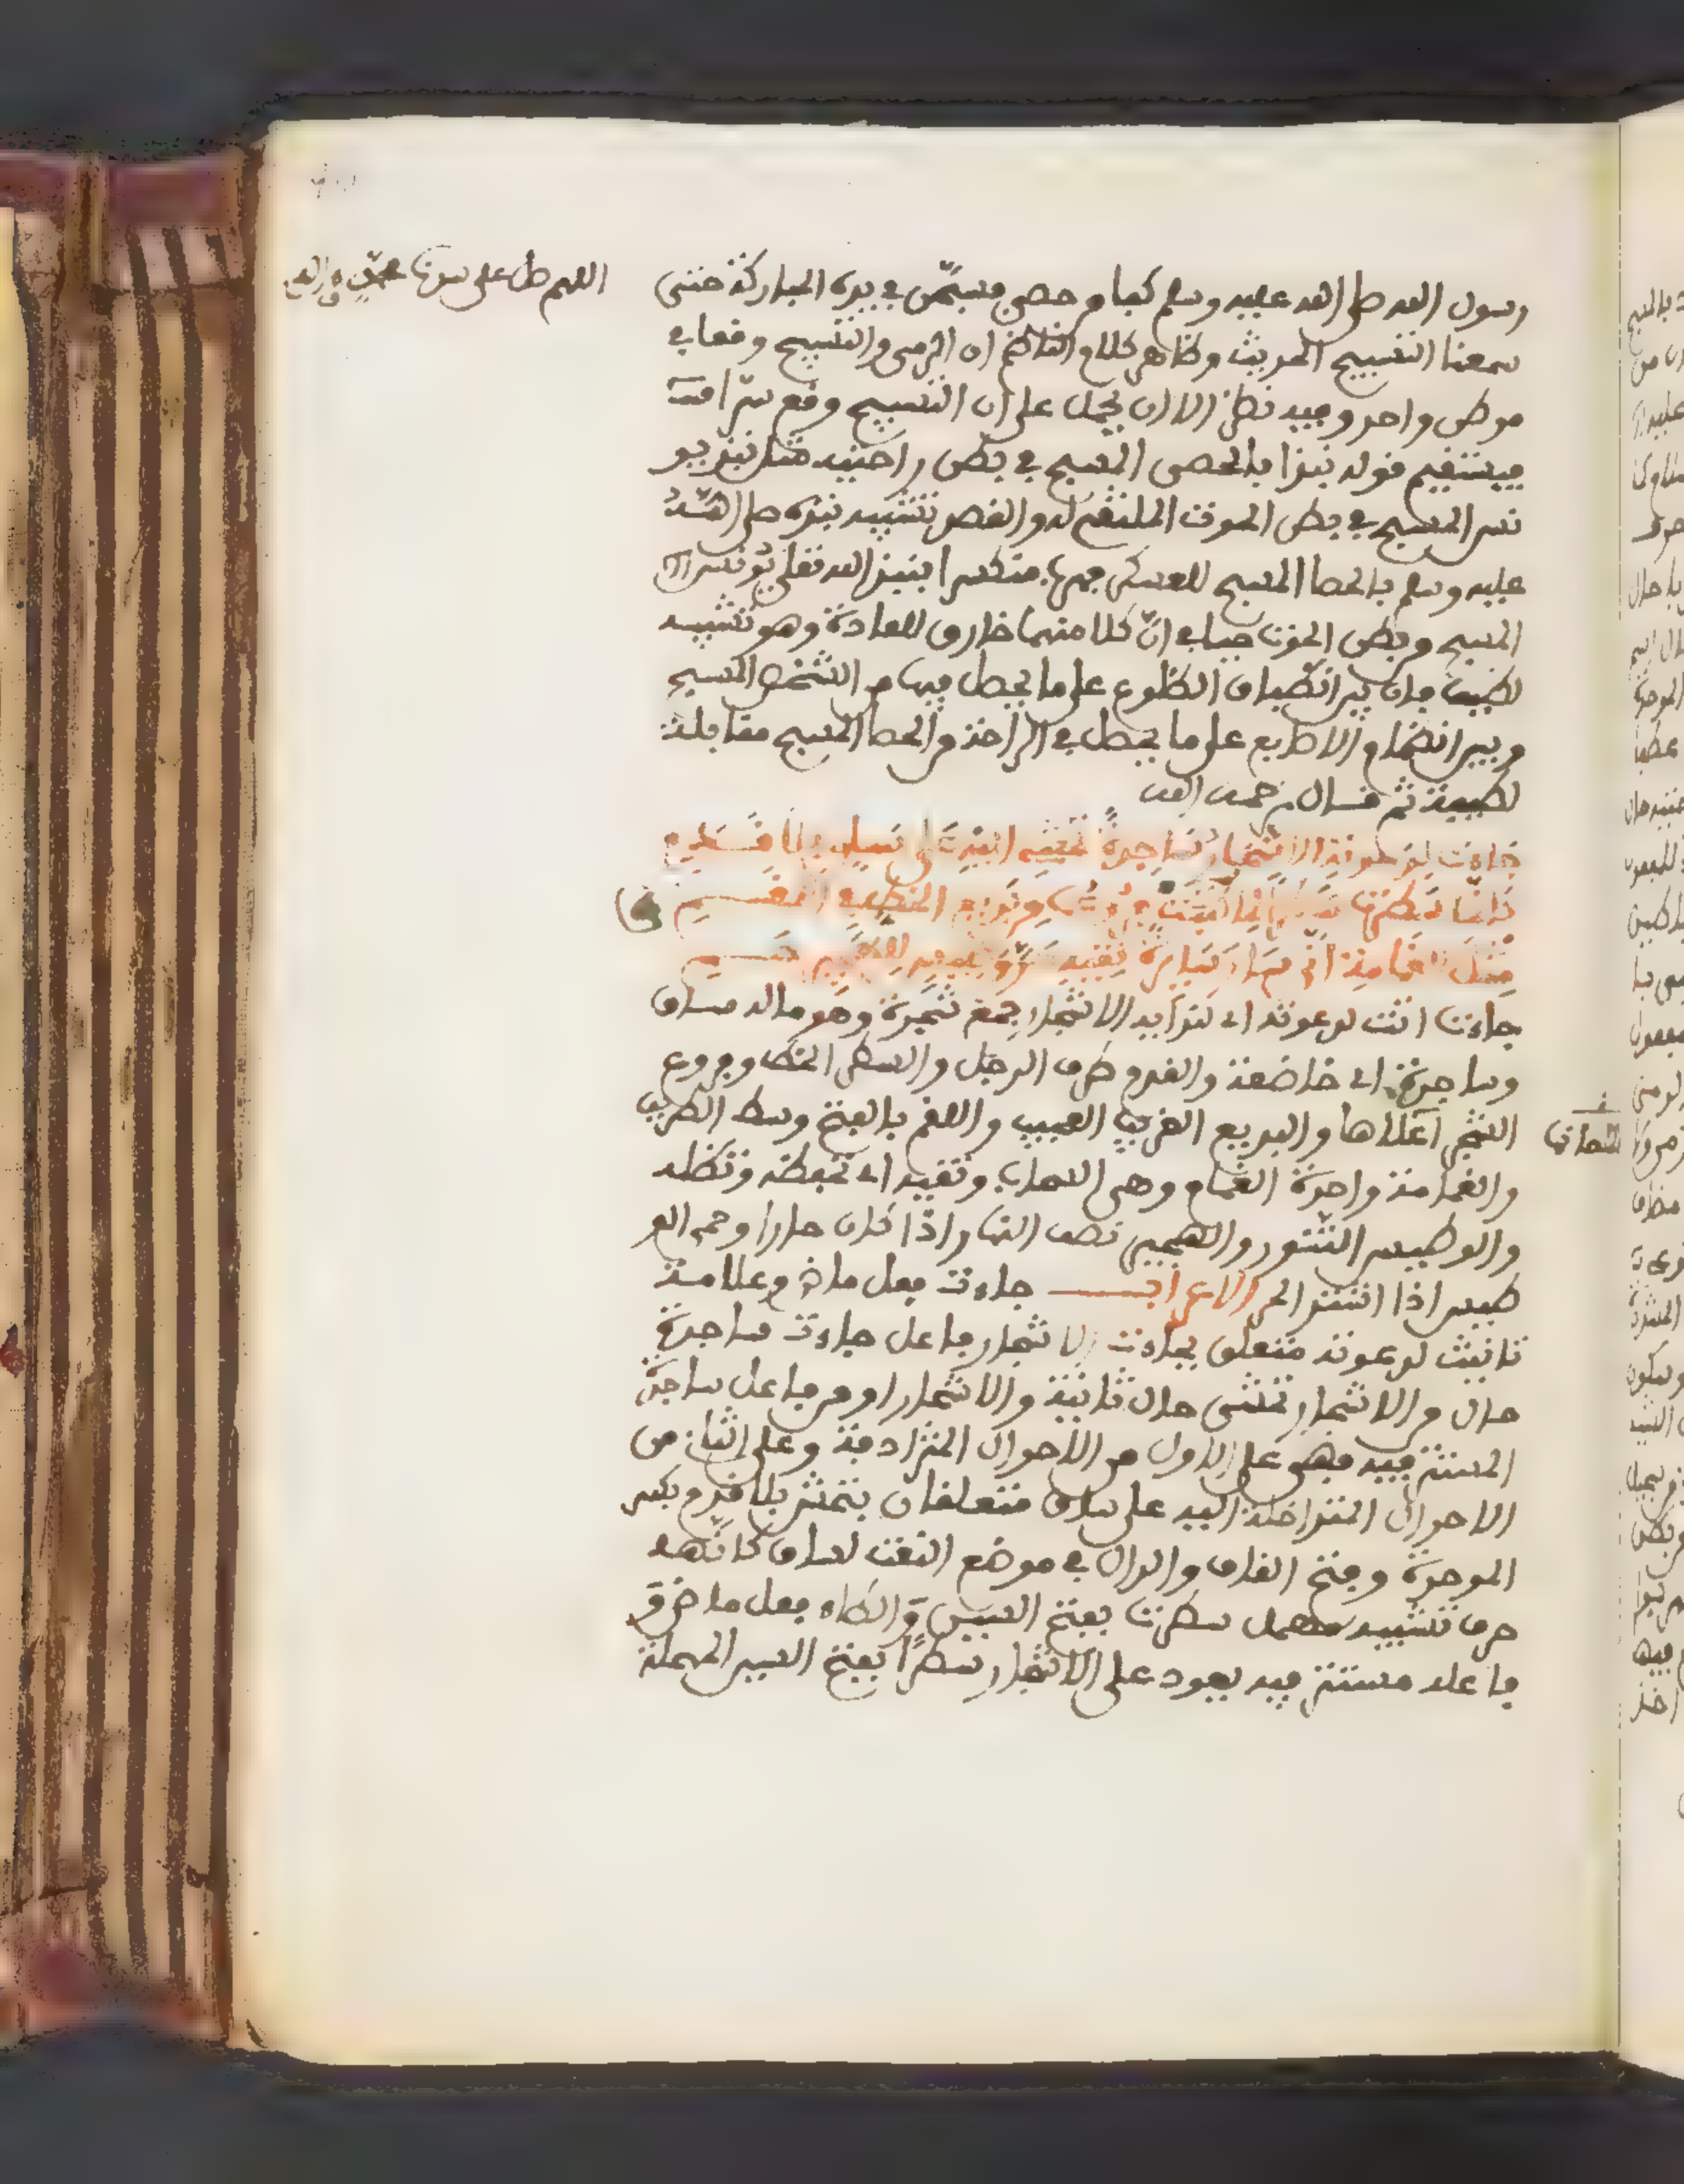 اللهم صل على سيدنا محمد وءاله
رسول الله صلى الله عليه وسلم كفا من حصى فسبحن في يده المباركة حتى
سمعنا التسبيح الحديث وظاهر كلام الناظم ان الرمي والتسبيح وقعا في
موطن واحد وفيه نظر الا ان يحمل على ان التسبيح وقع سرا فت
فيستقيم قوله نبذا بالحصى المسبح في بطن راحتيه مثل نبذ يو
نس المسبح في بطن الحوت الملتقم له والقصد تشبيه نبذه صلى الله
عليه وسلم بالحصا المسبح للعسكر فيها منكسرا بنبذ الله تعالى يونس
المسبح من بطن الحوت فيا في ان كلا منهما خارق للعادة وهو تشبيه
لطيف فان بين انطباق الضلوع على ما يحصل فيها من الشخص المسبح
وبين انضمام الاصابع على ما يحصل في الراحة من الحصا المسبح مقابلة
لطيفة ثم قال رحمه الله
جاءت لدعوته الاشجار ساجدة تمشي اليه على ساق بلا قدم
كانما سطرت سطرا لما كتبت فروعها من بديع الخط في اللقم
مثل الغمامة انى سار سايرة تقيه حر وطيس للهجير حم
جاءت اتت لدعوته اي لندايه الاشجار جمع شجرة وهو ما له ساق
وساجدة اي خاضعة والقدم طرف الرجل والسطر الخط وفروع
الشجر اعلاها والبديع الغريب العجيب واللقم بالفتح وسط الطريق
والغمامة واحدة الغمام وهي السحاب وتقيه اي تحفظه وتظله
والوطيس التنور والهجير نصف النهار اذا كان حارا وحم الو
طيس اذا اشتد الحر الاعراب جاءت فعل ماض وعلامة
تانيث لدعوته متعلق بجاءت الاشجار فاعل جاءت ساجدة
حال من الاشجار تمشي حال ثانية من الاشجار او من فاعل ساجدة
المستتر فيه فهي على الاول من الاحوال المترادفة وعلى الثاني من
الاحوال المتداخلة اليه على ساق متعلقان بتمشي بلا قدم بكسر
الموحدة وفتح القاف والدال في موضع النعت لساق كانما
حرف تشبيه مهمل سطرت بفتح السين والطاء فعل ماض و
فاعله مستتر فيه يعود على الاشجار سطرا بفتح السين المهملة